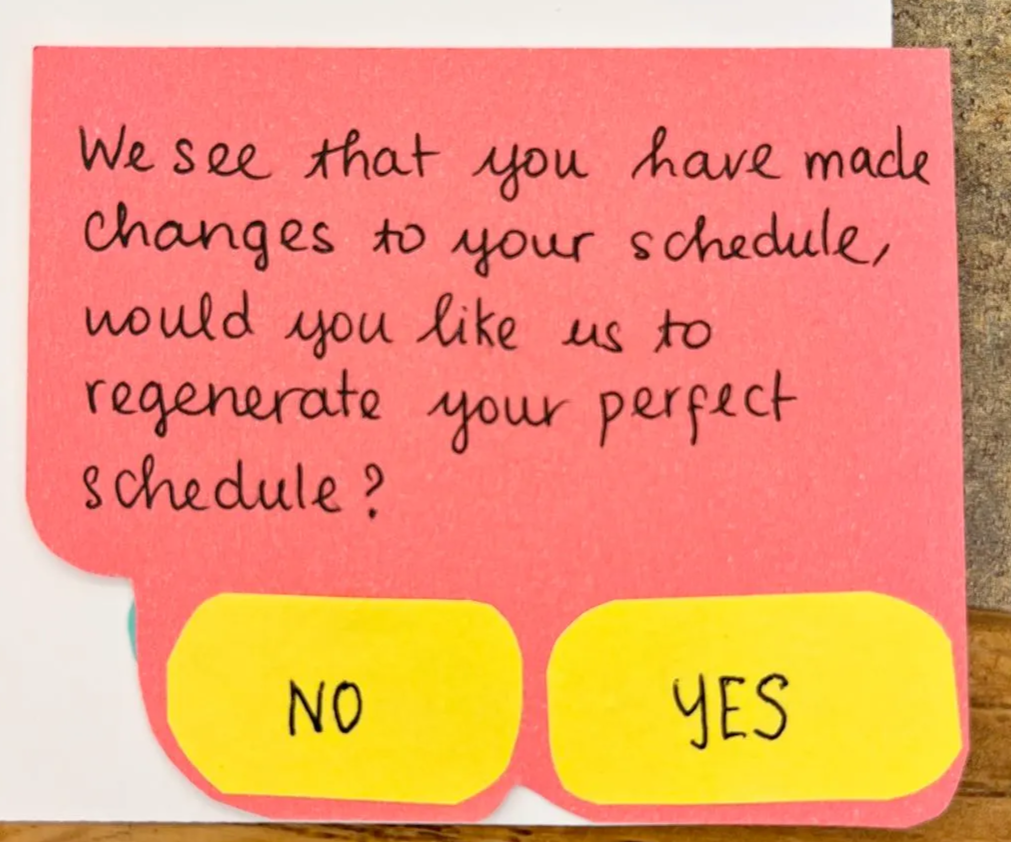 We see that you have made
changes to your schedule,
would you like us to
regenerate your perfect
schedule?
NO
YES